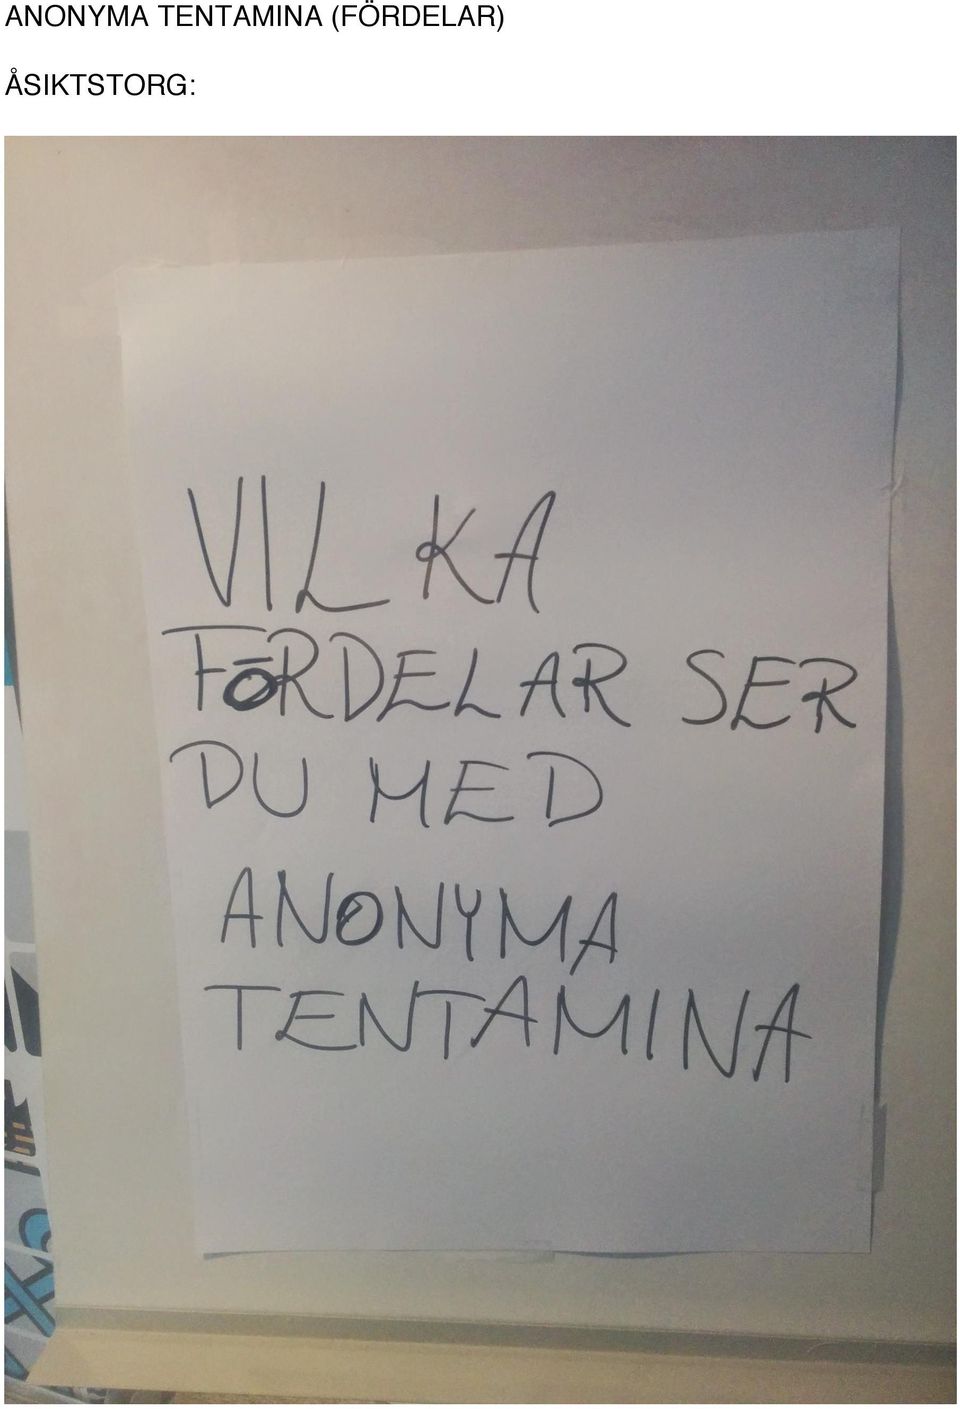 ANONYMA TENTAMINA (FÖRDELAR)
ÅSIKTSTORG:
VILKA
FÖRDELAR SER
DU MED
ANONYMA
TENTAMINA